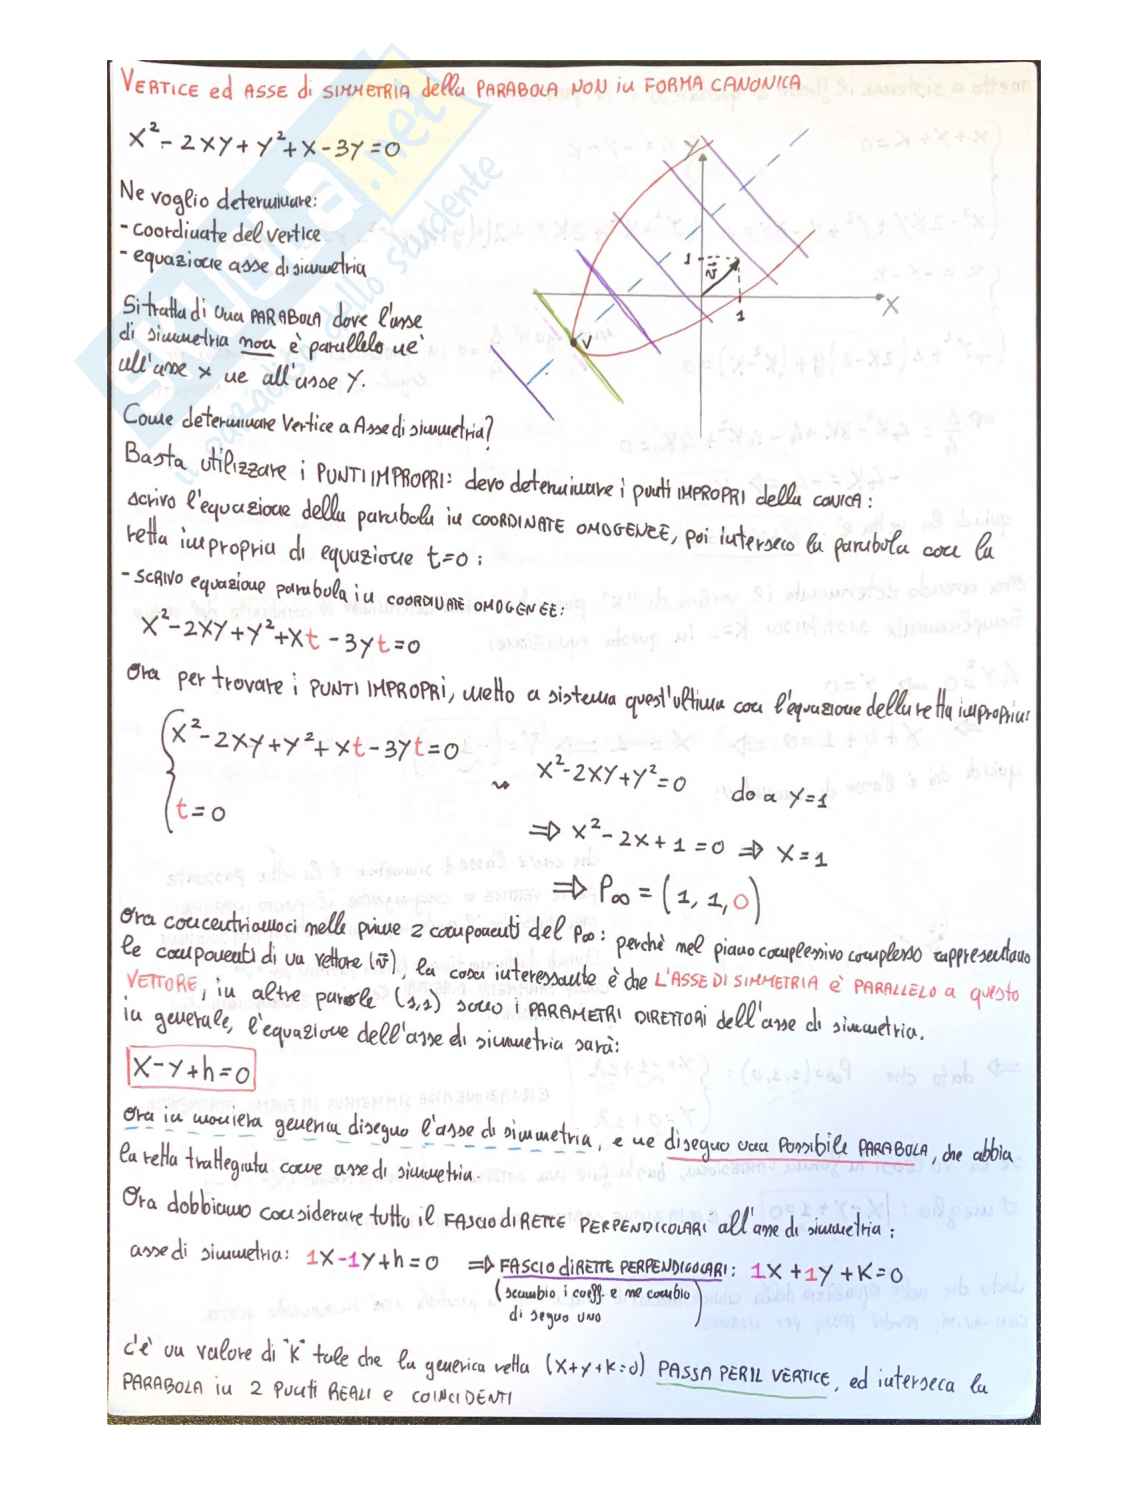 VERTICE ed ASSE di SIMMETRIA della PARABOLA NON in FORMA CANONICA
x²- 2xy + y² + x - 3y = 0
Ne voglio determinare:
- coordinate del vertice
- equazione asse di simmetria
Y
1
v⃗
1
X
V
Si tratta di una PARABOLA dove l'asse
di simmetria non è parallelo ne'
all'asse x ne all'asse Y.
Come determinare Vertice a Asse di simmetria?
Basta utilizzare i PUNTI IMPROPRI: devo determinare i punti IMPROPRI della conica:
scrivo l'equazione della parabola in COORDINATE OMOGENEE, poi interseco la parabola con la
retta impropria di equazione t=0:
- SCRIVO equazione parabola in COORDINATE OMOGENEE:
x²-2xy+y²+xt - 3yt=0
Ora per trovare i PUNTI IMPROPRI, metto a sistema quest'ultima con l'equazione della retta impropria:
x²-2xy+y²+xt-3yt=0
t=0
x²-2xy+y²=0 do a y=1
⇒ x²-2x+1=0 ⇒ x=1
⇒ P∞ = (1, 1, 0)
Ora concentriamoci nelle prime 2 componenti del P∞: perchè nel piano complessivo complesso rappresentano
le componenti di un vettore (v⃗), la cosa interessante è che L'ASSE DI SIMMETRIA è PARALLELO a questo
VETTORE, in altre parole (1,1) sono i PARAMETRI DIRETTORI dell'asse di simmetria.
in generale, l'equazione dell'asse di simmetria sarà:
x-y+h=0
Ora in maniera generica disegno l'asse di simmetria, e ne disegno una POSSIBILE PARABOLA, che abbia
la retta tratteggiata come asse di simmetria.
Ora dobbiamo considerare tutto il FASCIO di RETTE PERPENDICOLARI all'asse di simmetria:
asse di simmetria: 1x-1y+h=0 ⇒ FASCIO di RETTE PERPENDICOLARI: 1x+1y+K=0
(scambio i coeff. e ne cambio
di segno uno)
c'è un valore di "K" tale che la generica retta (x+y+k=0) PASSA PER IL VERTICE, ed interseca la
PARABOLA in 2 PUNTI REALI e COINCIDENTI
SKUOLA.net
il paradiso dello studente